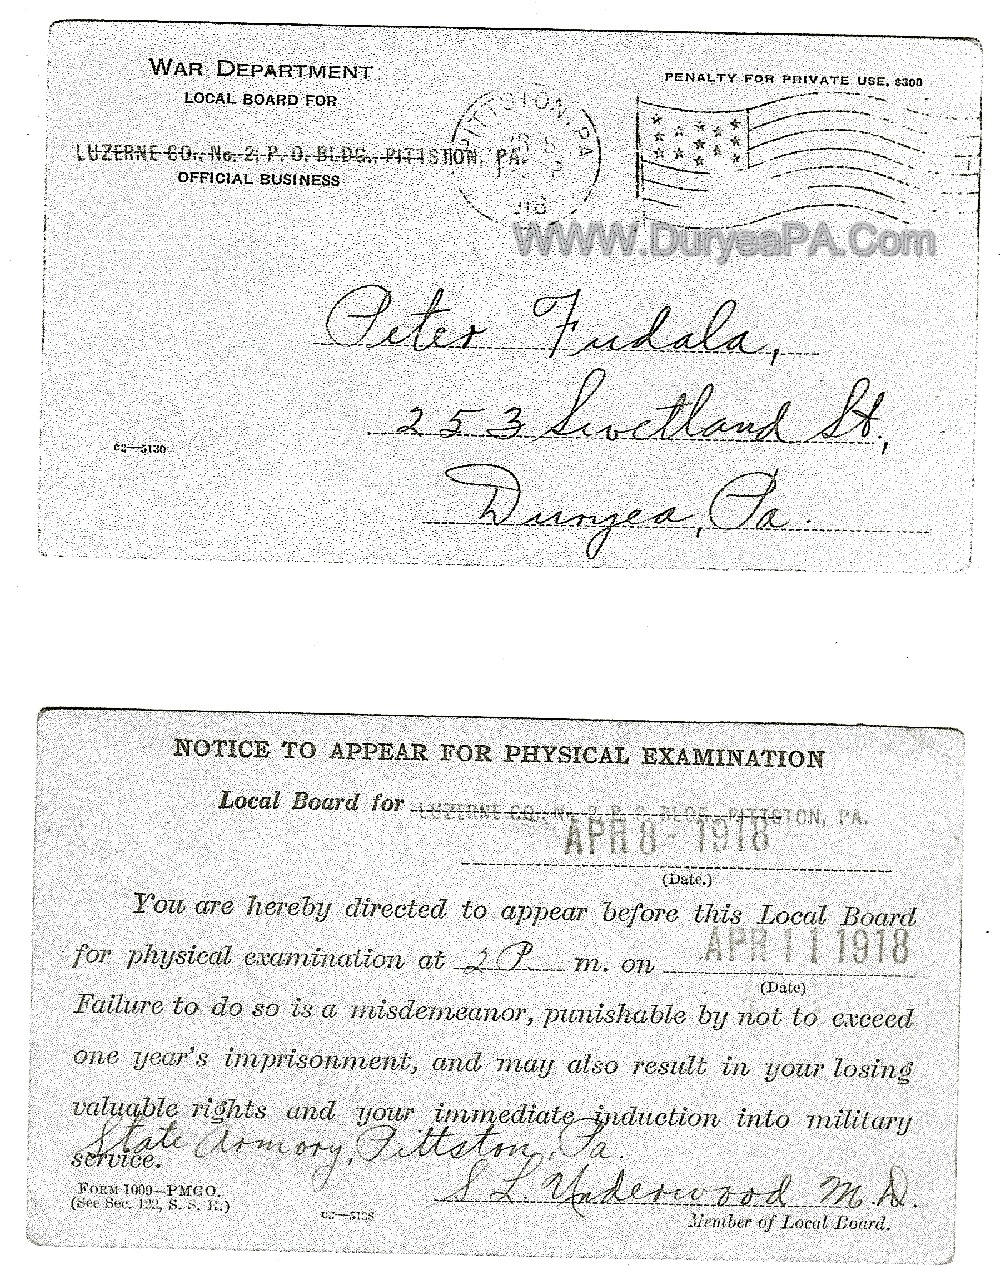 WAR DEPARTMENT
PENALTY FOR PRIVATE USE, $300
LOCAL BOARD FOR
LUZERNE CO., No. 2, P. O. BLDG., PITTSTON, PA.
OFFICIAL BUSINESS
PITTSTON, PA
WWW.DuryeaPA.Com
Peter Fudala,
253 Swetland St.,
Duryea, Pa.
NOTICE TO APPEAR FOR PHYSICAL EXAMINATION
Local Board for LUZERNE CO. No. 2 P. O. BLDG., PITTSTON, PA.
APR 8 - 1918
(Date.)
You are hereby directed to appear before this Local Board
for physical examination at 2 P. m. on APR 11 1918
(Date)
Failure to do so is a misdemeanor, punishable by not to exceed
one year's imprisonment, and may also result in your losing
valuable rights and your immediate induction into military
service.
State Armory, Pittston, Pa.
S L Underwood M.D.
FORM 1009—PMGO.
(See Sec. 122, S. S. R.)
Member of Local Board.